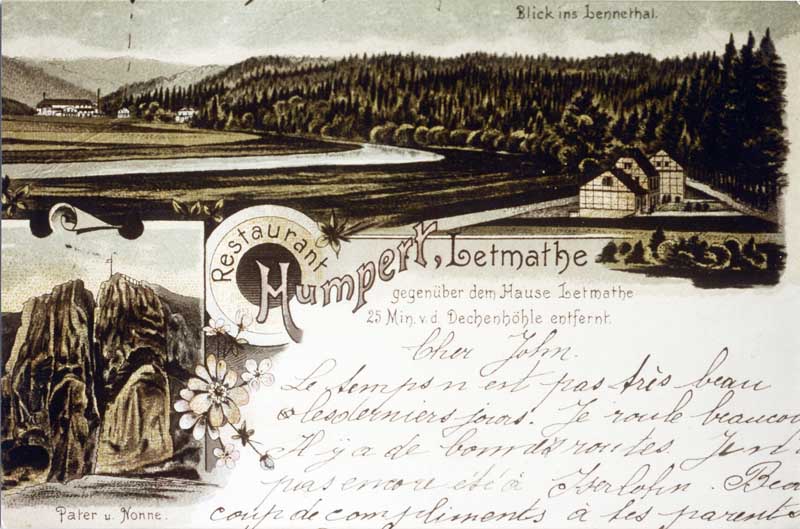 Blick ins Lennethal.
Restaurant
Humpert, Letmathe
gegenüber dem Hause Letmathe
25 Min. v. d. Dechenhöhle entfernt.
Pater u. Nonne.
Cher John.
Le temps n'est pas très beau
lesderniers jours. Je roule beaucou
Il y a de bonnes routes. Je n'
pas encore été à Iserlohn. Beau
coup de compliments à tes parents